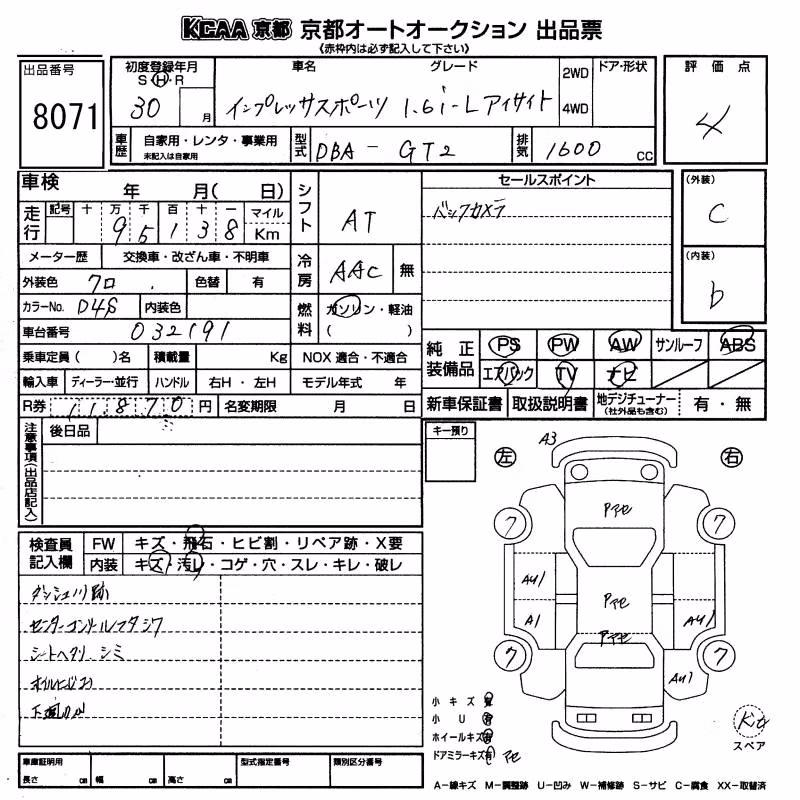 KCAA 京都 京都オートオークション 出品票
《赤枠内は必ず記入して下さい》
出品番号
8071
初度登録年月
S・H・R
30 月
車名 グレード
インプレッサスポーツ 1.6i-L アイサイト
2WD
4WD
ドア・形状
評価点
4
車歴
自家用・レンタ・事業用
未記入は自家用
型式
DBA - GT2
排気
1600 cc
車検 年 月( 日)
走行
記号 十 万 千 百 十 一 マイル
9 5 1 3 8 Km
メーター歴 交換車・改ざん車・不明車
外装色 クロ 色替 有
カラーNo. D4S 内装色
車台番号 032191
乗車定員( )名 積載量 Kg
輸入車 ディーラー・並行 ハンドル 右H・左H
R券 11870 円 名変期限 月 日
シフト
AT
冷房
AAC 無
燃料
ガソリン・軽油
( )
NOX 適合・不適合
モデル年式 年
セールスポイント
バックカメラ
(外装)
C
(内装)
b
純正装備品
PS PW AW サンルーフ ABS
エアバック TV ナビ
新車保証書 取扱説明書 地デジチューナー
(社外品も含む)
有・無
注意事項(出品店記入)
後日品
キー預り
左
右
A3
検査員記入欄
FW キズ・飛石・ヒビ割・リペア跡・X要
内装 キズ・汚レ・コゲ・穴・スレ・キレ・破レ
ダッシュ 跡
センターコンソールフタ シワ
シートヘタリ、シミ
オイルにじみ
ワ
ワ
Pアセ
AU1
A1
Pアセ
Pアセ
AU1
ワ
ワ
AU1
小キズ 有
小U 有
ホイールキズ 有
ドアミラーキズ 有
スペア
車庫証明用
長さ cm
幅 cm
高さ cm
型式指定番号
類別区分番号
A−線キズ M−調整跡 U−凹み W−補修跡 S−サビ C−腐食 XX−取替済